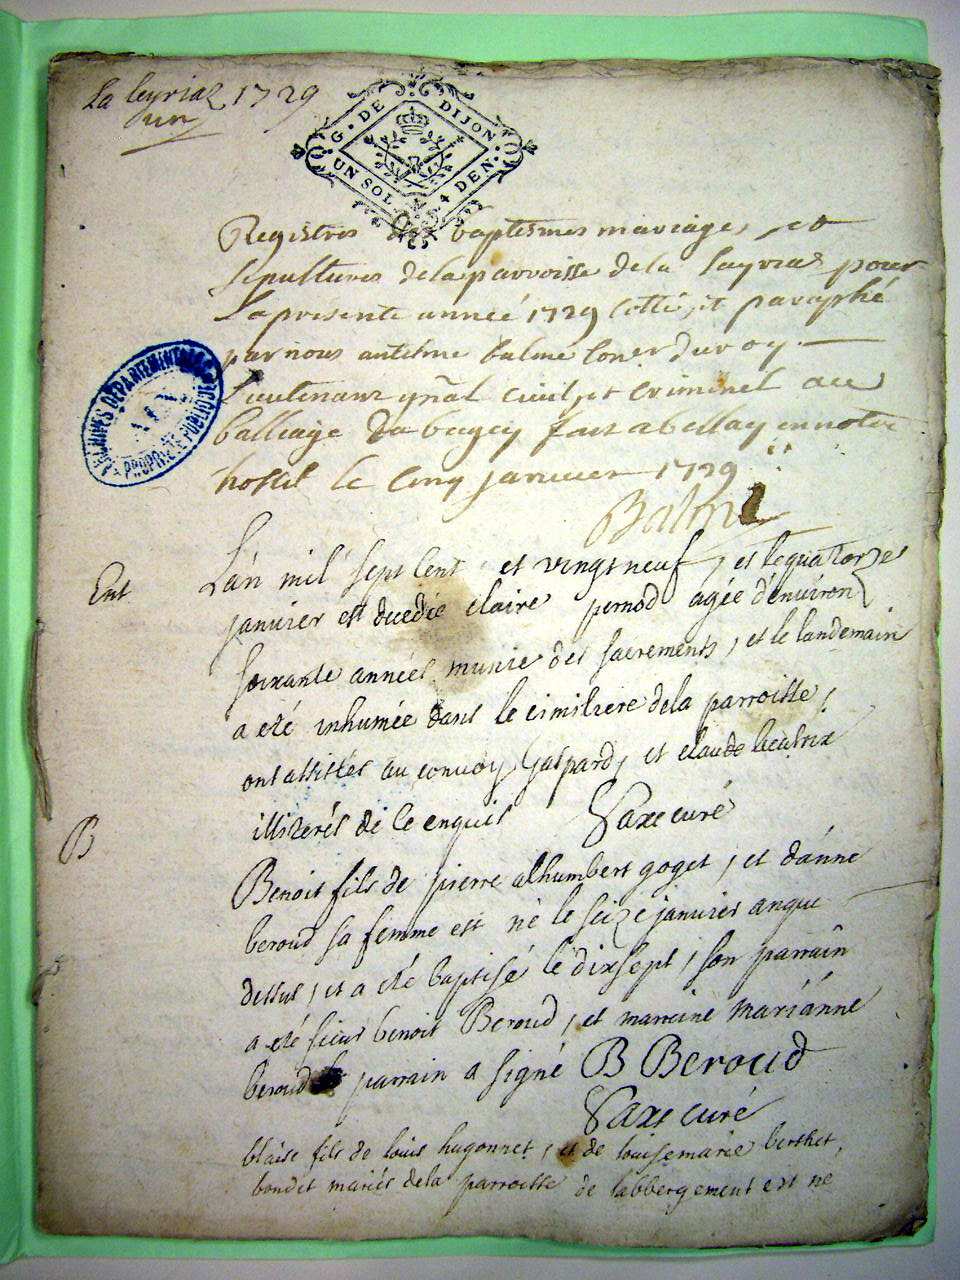 La leyriaz 1729
un
G. DE DIJON
UN SOL 4 DEN.
Registres des baptesmes mariages, et
sepultures de la parroisse de la Layriaz pour
La presente année 1729 Cotté, et paraphé
par nous antelme balme Coner du roy
Lieutenant gñal civil, et criminel au
balliage du bugey fait a bellay en notre
hostel le Cinq janvier 1729
Balme
ARCHIVES DÉPARTEMENTALES
PROPRIÉTÉ PUBLIQUE
Ent
L'an mil sept Cent et vingt neuf, et le quatorze
janvier est decedée claire pernod agée d'environ
soixante années munie des sacrements, et le landemain
a eté inhumée dans le cimitiere de la parroisse,
ont assistés au convoy Gaspard, et claude
illiterés de ce enquis Saxe curé
B
Benoit fils de pierre alhumbert goget, et d'anne
beroud sa femme est né le seize janvier anque
dessus, et a eté baptisé le dixsept, son parrain
a eté sieur benoit Beroud, et marrine marianne
beroud le parrain a signé B Beroud
Saxe curé
blaise fils de louis hugonnet, et de louise marie berthet,
bondet mariés de la parroisse de labbergement est né